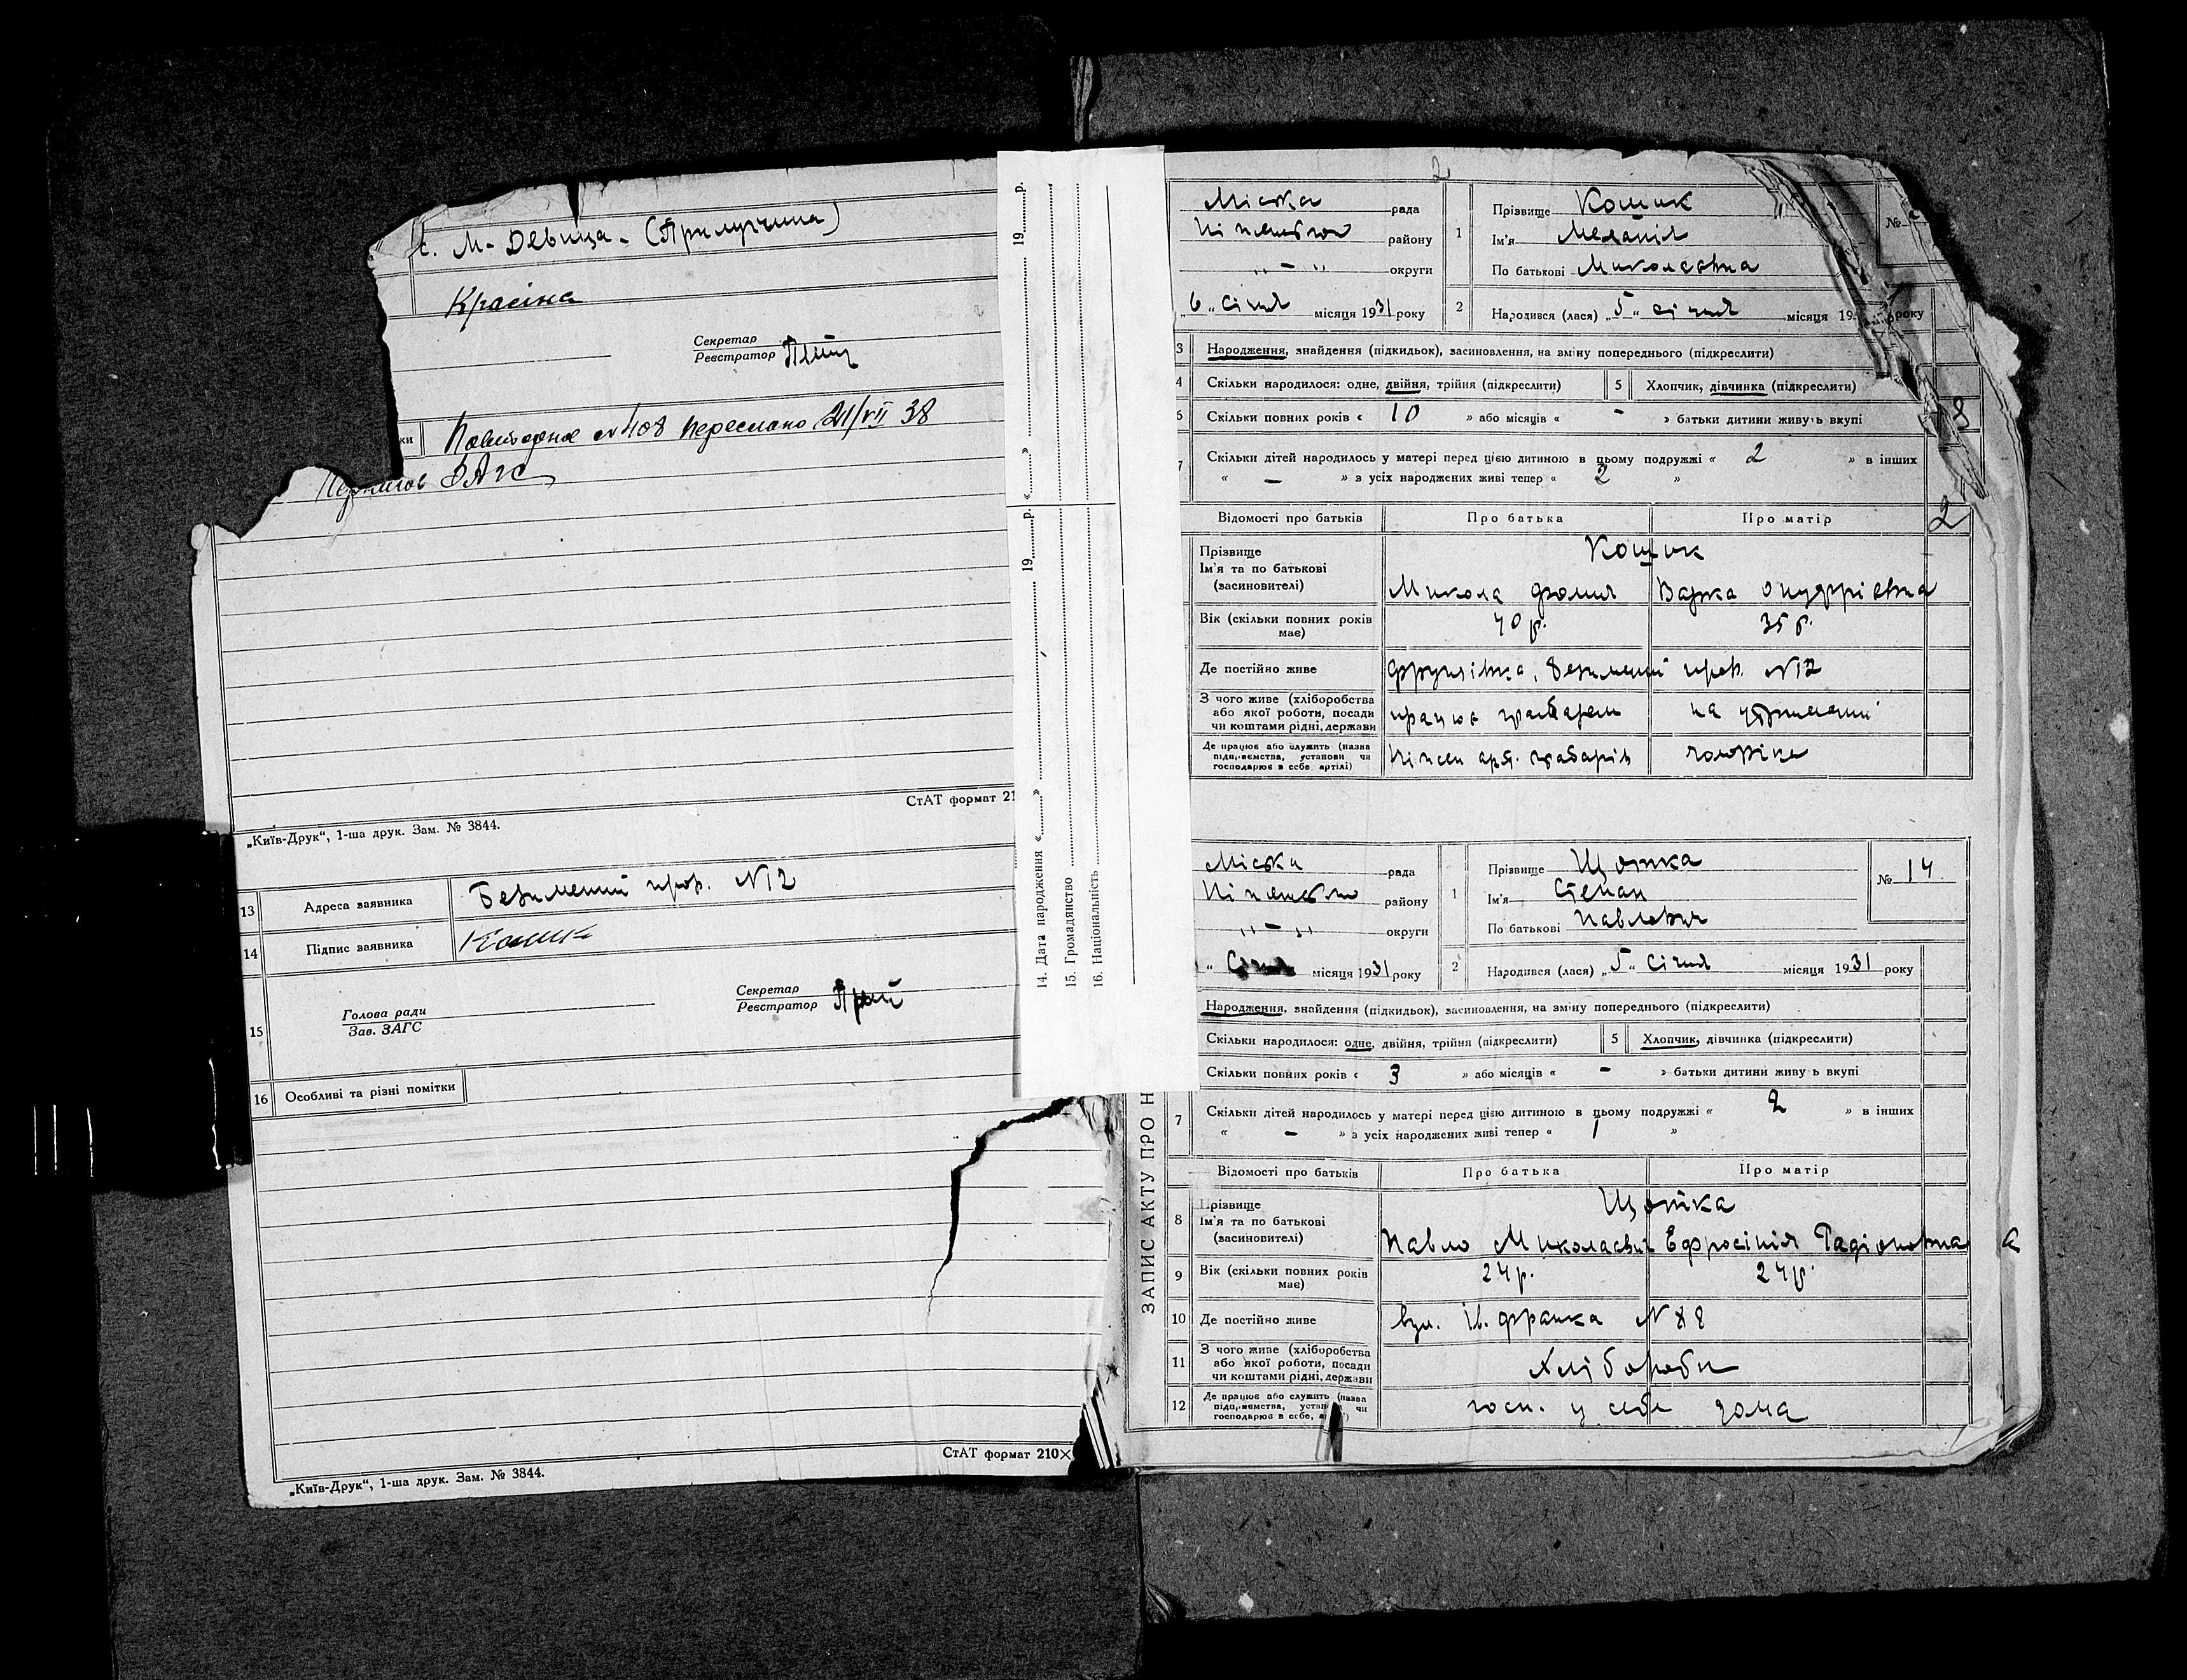 с. М-Девица - (Прилуччина)
Красіна
Секретар
Реєстратор
ки Повторное № 408 переслано 21/VII 38
ЗАГС
СтАТ формат 21
„Київ-Друк“, 1-ша друк. Зам. № 3844.
13 Адреса заявника Безименний пров. N12
14 Підпис заявника Кошик
15 Голова ради
Зав. ЗАГС
Секретар
Реєстратор
16 Особливі та різні помітки
СтАТ формат 210×
„Київ-Друк“, 1-ша друк. Зам. № 3844.
19 р.
19 р.
14. Дата народження « »
15. Громадянство
16. Національність
2
Міська рада
Ніженського району
„ - „ округи
„6„ січня місяця 1931 року
1 Прізвище Кошик
Ім'я Меланія
По батькові Миколаєвна
№
2 Народився (лася) „5„ січня місяця 19 року
3 Народження, знайдення (підкидьок), засиновлення, на зміну попереднього (підкреслити)
4 Скільки народилося: одне, двійня, трійня (підкреслити) 5 Хлопчик, дівчинка (підкреслити)
6 Скільки повних років « 10 » або місяців « - » батьки дитини живуть вкупі
7 Скільки дітей народилось у матері перед цією дитиною в цьому подружжі « 2 » в інших
« - » з усіх народжених живі тепер « 2 »
Відомості про батьків Про батька Про матір 2
Прізвище Кошик
Ім'я та по батькові
(засиновителі) Микола Фомич Варка Онуфрієвна
Вік (скільки повних років має) 40 р. 35 р.
Де постійно живе Фрунзівка, Безименний пров. N12
З чого живе (хліборобства
або якої роботи, посади
чи коштами рідні, держави працює грабарем на утриманні
Де працює або служить (назва
підприємства, установи чи
господарює в себе, артілі) Ніжен арт. грабарів чоловіка
Міська рада
Ніженського району
„ - „ округи
„ Січня місяця 1931 року
1 Прізвище Щотка
Ім'я Степан
По батькові Павлович
№ 14
2 Народився (лася) „5„ Січня місяця 1931 року
Народження, знайдення (підкидьок), засиновлення, на зміну попереднього (підкреслити)
Скільки народилося: одне, двійня, трійня (підкреслити) 5 Хлопчик, дівчинка (підкреслити)
Скільки повних років « 3 » або місяців « - » батьки дитини живуть вкупі
7 Скільки дітей народилось у матері перед цією дитиною в цьому подружжі « 2 » в інших
« - » з усіх народжених живі тепер « 1 »
ЗАПИС АКТУ ПРО Н
Відомості про батьків Про батька Про матір
8 Прізвище Щотка
Ім'я та по батькові
(засиновителі) Павло Миколаєвич Ефросінія Радіоновна
9 Вік (скільки повних років має) 24 р. 24 р.
10 Де постійно живе вул. Ів. Франка N 88
11 З чого живе (хліборобства
або якої роботи, посади
чи коштами рідні, держави Хлібороби
12 Де працює або служить (назва
підприємства, установи чи
господарює в себе, артілі) госп. у себе дома